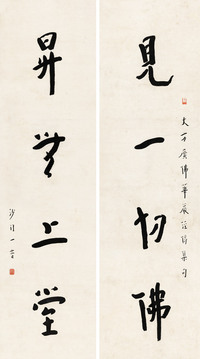 見一切佛
大方廣佛華嚴經集句
昇無上堂
沙門一音